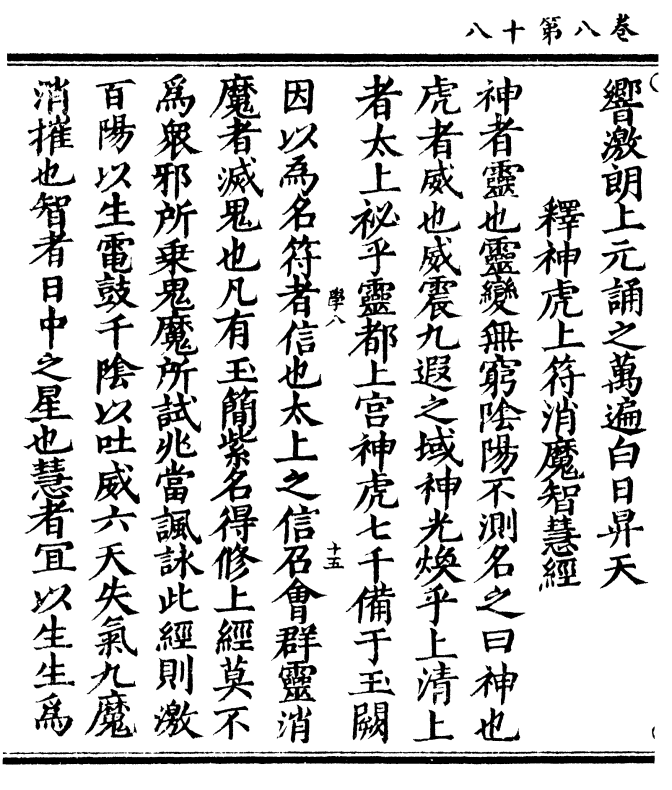 卷八第十八
響激朗上元誦之萬遍白日昇天
釋神虎上符消魔智慧經
神者靈也靈變無窮陰陽不測名之曰神也
虎者威也威震九遐之域神光煥乎上清上
者太上祕乎靈都上宫神虎七千備于玉闕
學八
十五
因以為名符者信也太上之信召會群靈消
魔者滅鬼也凡有玉簡紫名得修上經莫不
為衆邪所乗鬼魔所試兆當諷詠此經則激
百陽以生電鼓千陰以吐威六天失氣九魔
消摧也智者日中之星也慧者冝以生生為